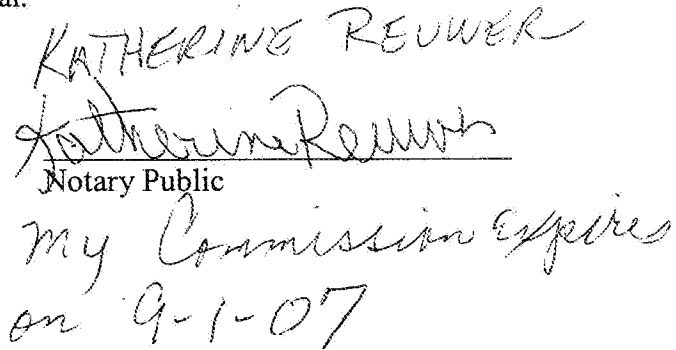 KATHERINE REUWER
Katherine Reuwer
Notary Public
My Commission Expires
on 9-1-07